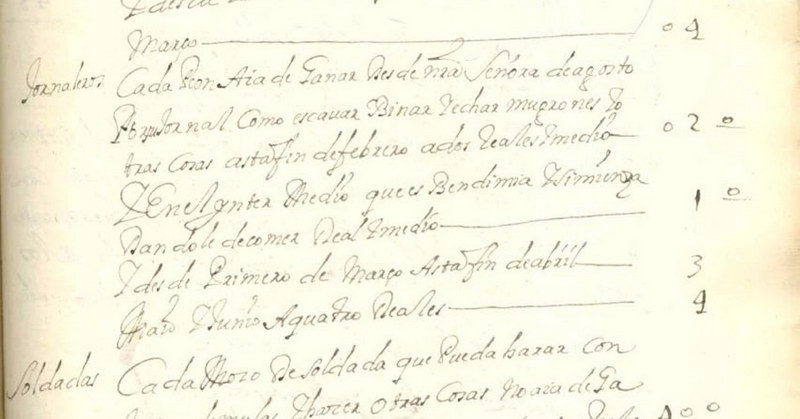 Março 04
Jornaleros Cada Peon Aia de Ganar Desde nra Señora de agosto
Por su Jornal Como escavar Binar Y echar mugrones Y o
tras Cosas asta fin de febrero a dos Reales Y medio 02 o
Y En el Ynter Medio que es Bendimia Y Simienza
Dandole de comer Real Y medio 1 o
Y desde Primero de Março Asta fin de abril 3
Maio Y Junio A quatro Reales 4
Soldadas Cada Mozo De Soldada que Pueda harar Con
mulas Y hacer Otras Cosas no aia de Ga